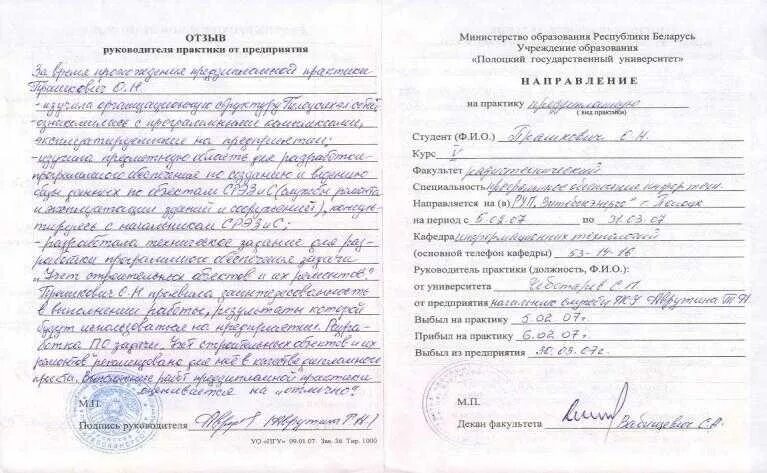 ОТЗЫВ
руководителя практики от предприятия
За время прохождения преддипломной практики
Прашкович О.Н.
- изучила организационную структуру Полоцких сетей
- ознакомилась с программными комплексами,
эксплуатируемыми на предприятии;
- изучила предметную область для разработки
программного обеспечения по созданию и ведению
базы данных по объектам СРЭЗиС (службы ремонта
и эксплуатации зданий и сооружений),
с начальником СРЭЗиС;
- разработала техническое задание для раз-
работки программного обеспечения задачи
"Учет строительных объектов и их ремонтов".
Прашкович О.Н. проявила заинтересованность
в выполнении работы, результаты которой
будут использоваться на предприятии. Разра-
ботка ПО задачи "Учет строительных объектов и их
ремонтов" рекомендована для неё в качестве дипломного
проекта. работ преддипломной практики
оценивается на "отлично".
М.П.
Подпись руководителя
УО «ПГУ» 09.01.07. Зак. 36 Тир. 1000
Министерство образования Республики Беларусь
Учреждение образования
«Полоцкий государственный университет»
НАПРАВЛЕНИЕ
на практику преддипломную
( вид практики)
Студент (Ф.И.О.) Прашкович О.Н.
Курс V
Факультет радиотехнический
Специальность программное обеспечение информ. техн.
Направляется на (в) РУП "Витебскэнерго" г. Полоцк
на период с 5.02.07 по 31.03.07
Кафедра информационных технологий
(основной телефон кафедры) 53-14-16
Руководитель практики (должность, Ф.И.О.):
от университета Чеботарев С.П.
от предприятия начальник службы Аврутина
Выбыл на практику 5.02.07г.
Прибыл на практику 6.02.07г.
Выбыл из предприятия 30.03.07г.
М.П.
Декан факультета